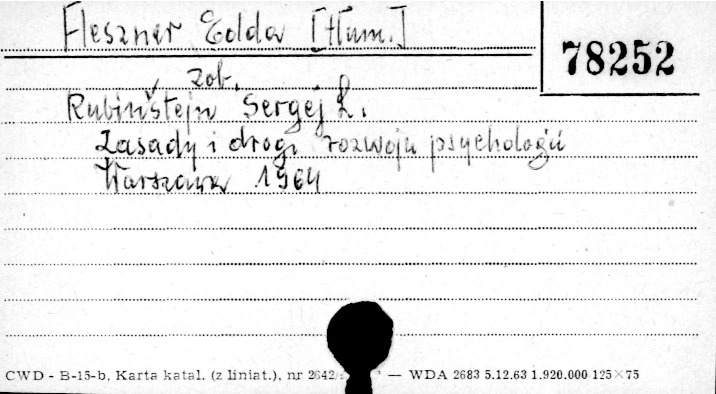 Fleszner Edda [tłum.]
78252
zob.
Rubinštejn Sergej L.
Zasady i drogi rozwoju psychologii
Warszawa 1964
CWD - B-15-b, Karta katal. (z liniat.), nr 2642/ — WDA 2683 5.12.63 1.920.000 125×75